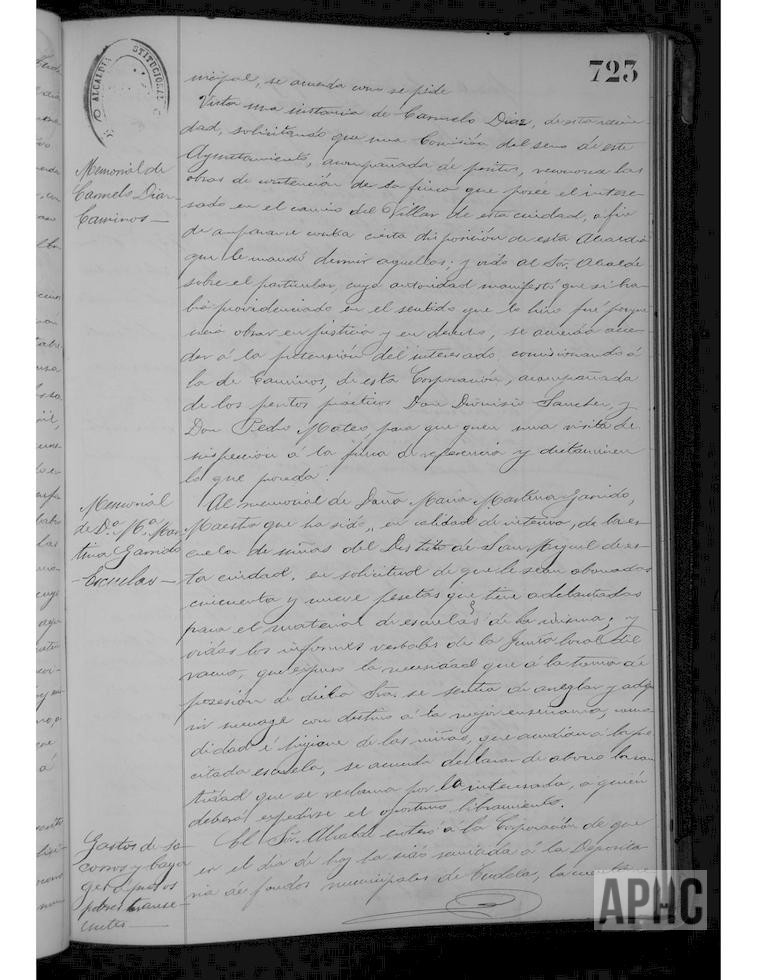 723
ALCALDIA CONSTITUCIONAL
nicipal, se acuerda como se pide
Memorial de
Carmelo Diaz
Caminos—
Vista una instancia de Carmelo Diaz, de esta vecin-
dad, solicitando que una Comisión del seno de este
Ayuntamiento, acompañada de peritos, reconozca las
obras de contención de la finca que posee el intere-
sado en el camino del Villar de esta ciudad, a fin
de ampararse contra cierta disposición de esta Alcaldia
que le mandó demoler aquellas; y oido al Sor. Alcalde
sobre el particular, cuya autoridad manifestó que si ha-
bia providenciado en el sentido que lo hizo fué porque
creia obrar en justicia y en derecho, se acuerda acce-
der á la pretensión del interesado, comisionando á
la de Caminos, de esta Corporación, acompañada
de los peritos practicos Don Dionisio Sanchez y
Don Pedro Mateo para que giren una visita de
inspección á la finca de referencia y dictaminen
lo que proceda.
Memorial
de D.ª M.ª Mar-
tina Garrido
Escuelas—
Al memorial de Doña Maria Martina Garrido,
Maestra que ha sido, en calidad de interina, de la es-
cuela de niñas del Distrito de San Miguel de es-
ta ciudad, en solicitud de que le sean abonadas
cincuenta y nueve pesetas que tiene adelantadas
para el material de escuelas de la misma; y
oidos los informes verbales de la Junta local del
ramo, que expuso la necesidad que á la toma de
posesión de dicha Sra. se sentia de arreglar y adqui-
rir menage con destino á la mejor enseñanza, como-
didad é higiene de las niñas, que acudian á la pre-
citada escuela, se acuerda declarar de abono la can-
tidad que se reclama por la interesada, a quién
deberá expedirse el oportuno libramiento.
Gastos de so-
corros y baga-
ges a presos
pobres transe-
untes—
El Sor. Alcalde enteró á la Corporación de que
en el dia de hoy ha sido remitida á la Deposita-
ria de fondos municipales de Tudela, la cuenta
APHC